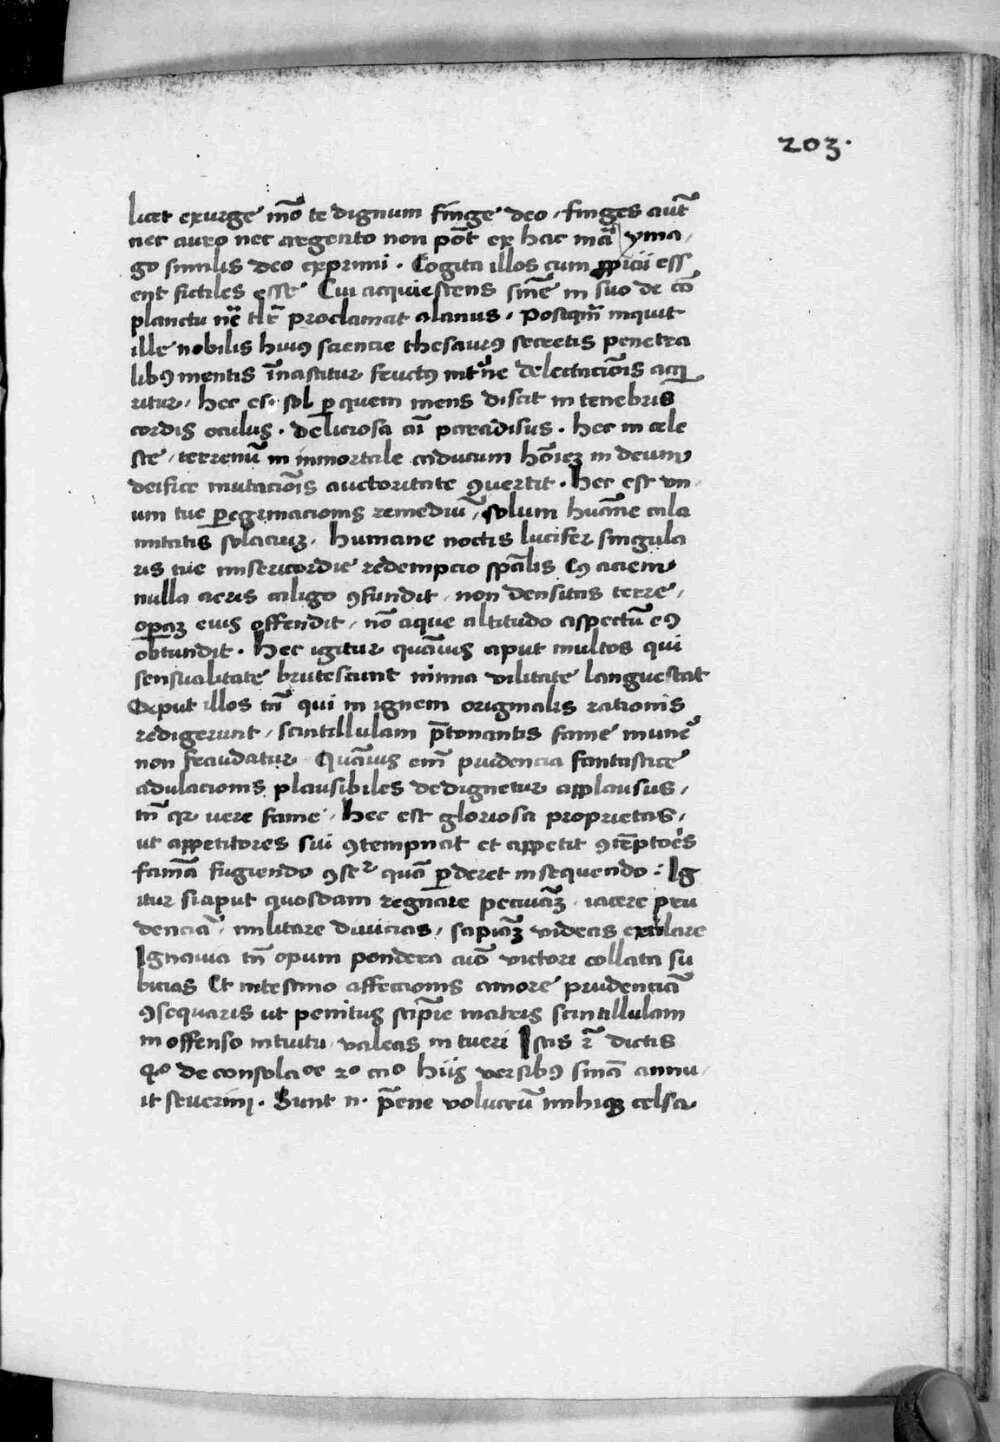 203.
licet exurge mo̅ te dignum finge deo, finges aut̅
nec auro nec argento non pot̅ ex hac ma̅ yma,
go similis deo exprimi. Cogita illos cum ꝓpicii ess
ent fictiles esse Cui acquiescens in suo de co̅
planctu proclamat alanus, Posteqm̅ inquit
ille nobilis huiꝯ sciencie thesaurꝯ secretis penetra
libꝯ mentis fructꝯ delectacio̅is acq̅
ritur, hec est sol ꝑ quem mens discit in tenebris
cordis oculus. deliciosa ai̅ paradisus. hec in cele
ste, terrenu̅ in inmortale caducum ho̅iez in deum
deifice mutacio̅is auctoritate ꝯuertit. hec est vn,
um tue ꝑegrinacionis remediu̅, solum hua̅ne cala
mitatis solaciuz, humane noctis lucifer singula
ris tue misericordie redempcio sp̅alis Cꝯ aciem
nulla aeris caligo ꝯfundit, non densitas terre,
oꝑaz eius offendit, no̅ aque altitudo aspectu̅ eꝯ
obtundit. hec igitur qua̅uis aput multos qui
sensualitate brutescunt nimia vilitate languescat
Aput illos tn̅ qui in ignem originalis rationis
redigerunt, scintillulam p̅tonantis fame mune
non fraudatur Qua̅uis em̅ prudencia fantastice
adulacionis plausibiles dedignetur applausus,
tn̅ qr vere fame, hec est gloriosa proprietas,
ut appetitores sui ꝯtempnat et appetit ꝯte̅ptores
fama̅ fugiendo ꝯseqr qua̅ ꝑderet insequendo: Ig
itur si aput quosdam regnare pecunia̅z, iacere pru
dencia̅, militare diuicias, sapia̅z videas exulare
Ignauia tn̅ opum pondera aio̅ victori collata su
bicias Et intestino affeccionis amore prudencia̅
ꝯsequaris ut penitus scip̅ie matris scintillulam
in offenso intuitu valeas intueri Istis dictis
4o de consolaoe 2o mo hiis versibꝯ sina̅ annu,
it seuerini. Sunt n. p̅ene volucru̅ mihiqꝫ celsa